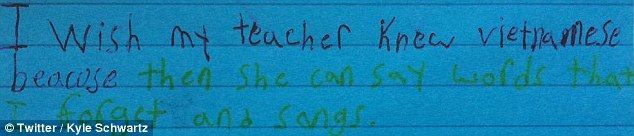 I Wish my teacher Knew vietnamese
beacuse then she can say words that
I forget and songs.
© Twitter / Kyle Schwartz